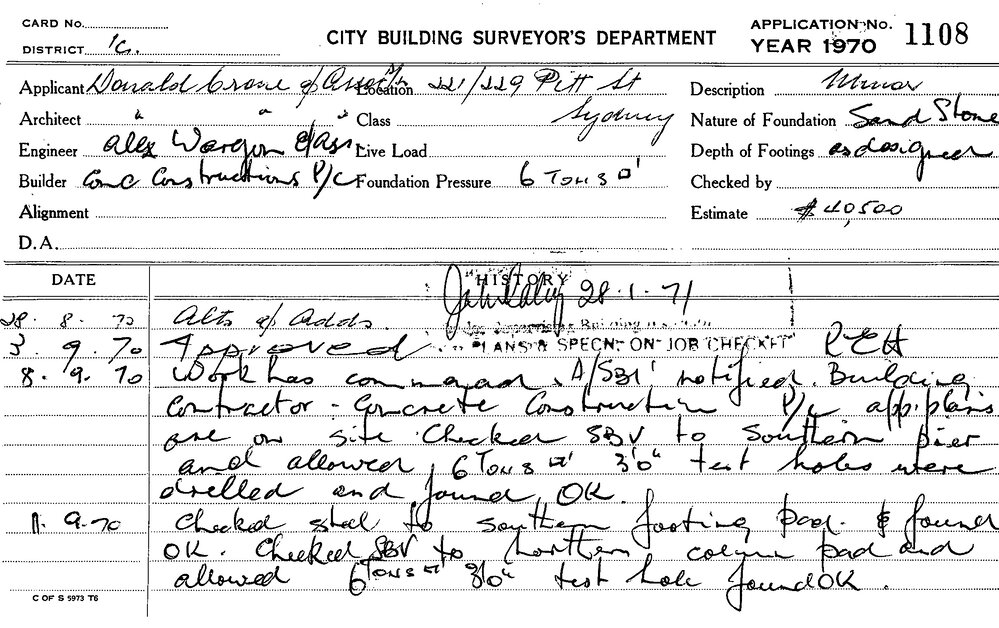 CARD No.
DISTRICT 1c.
CITY BUILDING SURVEYOR'S DEPARTMENT
APPLICATION No. 1108
YEAR 1970
Applicant Donald Crone & Assoc's Location 221/229 Pitt St
Description Minor
Architect " " " Class Sydney
Nature of Foundation Sand Stone
Engineer Alex Wargon & Ass. Live Load
Depth of Footings as designed
Builder Conc Constructions P/L Foundation Pressure 6 Tons □'
Checked by
Alignment
Estimate $40,500
D.A.
DATE
HISTORY
28.1.71
28. 8. 70 Alts & Adds.
PLANS & SPECN. ON JOB CHECKED
3. 9. 70 Approved
8. 9. 70 Work has commenced, A/SBI notified. Building
Contractor - Concrete Construction P/L app. plans
are on site. Checked SBV to Southern pier
and allowed 6 Tons □' 3'0" test holes were
drilled and found OK.
11. 9. 70 Checked steel to southern footing pad. & found
OK. Checked SBV to northern column pad and
allowed 6 Tons □' 3'0" test hole found OK.
C OF S 5973 T6